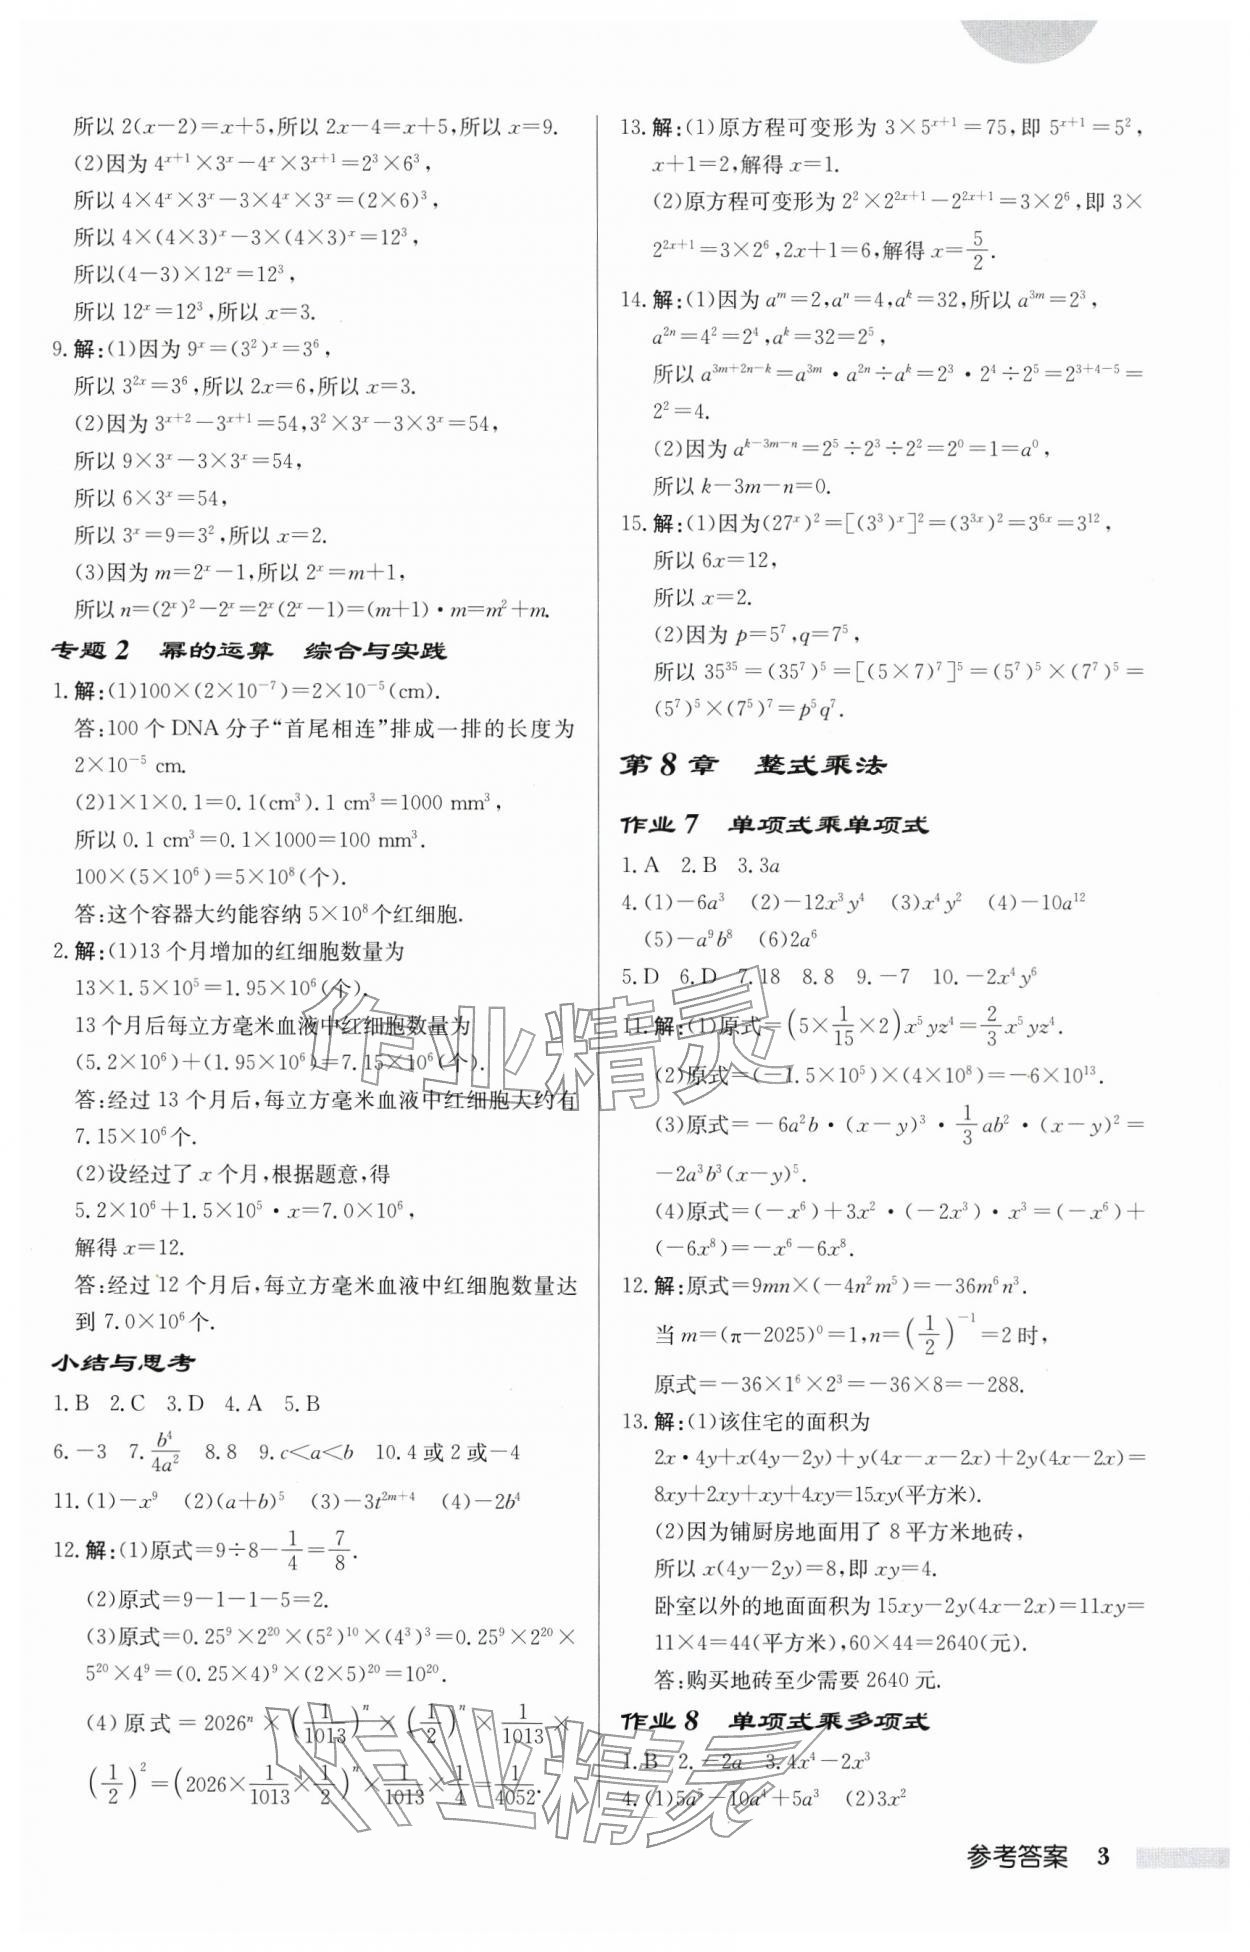 所以 2(x−2)=x+5,所以 2x−4=x+5,所以 x=9.
(2)因为 4^{x+1}×3^x−4^x×3^{x+1}=2³×6³,
所以 4×4^x×3^x−3×4^x×3^x=(2×6)³,
所以 4×(4×3)^x−3×(4×3)^x=12³,
所以(4−3)×12^x=12³,
所以 12^x=12³,所以 x=3.
9. 解:(1)因为 9^x=(3²)^x=3⁶,
所以 3^{2x}=3⁶,所以 2x=6,所以 x=3.
(2)因为 3^{x+2}−3^{x+1}=54,3²×3^x−3×3^x=54,
所以 9×3^x−3×3^x=54,
所以 6×3^x=54,
所以 3^x=9=3²,所以 x=2.
(3)因为 m=2^x−1,所以 2^x=m+1,
所以 n=(2^x)²−2^x=2^x(2^x−1)=(m+1)·m=m²+m.
专题 2 幂的运算 综合与实践
1. 解:(1)100×(2×10⁻⁷)=2×10⁻⁵(cm).
答:100 个 DNA 分子“首尾相连”排成一排的长度为
2×10⁻⁵ cm.
(2)1×1×0.1=0.1(cm³).1 cm³=1000 mm³,
所以 0.1 cm³=0.1×1000=100 mm³.
100×(5×10⁶)=5×10⁸(个).
答:这个容器大约能容纳 5×10⁸个红细胞.
2. 解:(1)13 个月增加的红细胞数量为
13×1.5×10⁵=1.95×10⁶(个).
13 个月后每立方毫米血液中红细胞数量为
(5.2×10⁶)+(1.95×10⁶)=7.15×10⁶(个).
答:经过 13 个月后,每立方毫米血液中红细胞大约有
7.15×10⁶个.
(2)设经过了 x 个月,根据题意,得
5.2×10⁶+1.5×10⁵·x=7.0×10⁶,
解得 x=12.
答:经过 12 个月后,每立方毫米血液中红细胞数量达
到 7.0×10⁶个.
小结与思考
1. B 2. C 3. D 4. A 5. B
6. −3 7. b⁴/4a² 8. 8 9. c<a<b 10. 4 或 2 或−4
11. (1)−x⁹ (2)(a+b)⁵ (3)−3t^{2m+4} (4)−2b⁴
12. 解:(1)原式=9÷8−1/4=7/8.
(2)原式=9−1−1−5=2.
(3)原式=0.25⁹×2²⁰×(5²)¹⁰×(4³)³=0.25⁹×2²⁰×
5²⁰×4⁹=(0.25×4)⁹×(2×5)²⁰=10²⁰.
(4)原式=2026^n×(1/1013)^n×(1/2)^n×1/1013×
(1/2)²=(2026×1/1013×1/2)^n×1/1013×1/4=1/4052.
13. 解:(1)原方程可变形为 3×5^{x+1}=75,即 5^{x+1}=5²,
x+1=2,解得 x=1.
(2)原方程可变形为 2²×2^{2x+1}−2^{2x+1}=3×2⁶,即 3×
2^{2x+1}=3×2⁶,2x+1=6,解得 x=5/2.
14. 解:(1)因为 a^m=2,a^n=4,a^k=32,所以 a^{3m}=2³,
a^{2n}=4²=2⁴,a^k=32=2⁵,
所以 a^{3m+2n−k}=a^{3m}·a^{2n}÷a^k=2³·2⁴÷2⁵=2^{3+4−5}=
2²=4.
(2)因为 a^{k−3m−n}=2⁵÷2³÷2²=2⁰=1=a⁰,
所以 k−3m−n=0.
15. 解:(1)因为(27^x)²=[(3³)^x]²=(3^{3x})²=3^{6x}=3¹²,
所以 6x=12,
所以 x=2.
(2)因为 p=5⁷,q=7⁵,
所以 35³⁵=(35⁷)⁵=[(5×7)⁷]⁵=(5⁷)⁵×(7⁷)⁵=
(5⁷)⁵×(7⁵)⁷=p⁵q⁷.
第 8 章 整式乘法
作业 7 单项式乘单项式
1. A 2. B 3. 3a
4. (1)−6a³ (2)−12x³y⁴ (3)x⁴y² (4)−10a¹²
(5)−a⁹b⁸ (6)2a⁶
5. D 6. D 7. 18 8. 8 9. −7 10. −2x⁴y⁶
11. 解:(1)原式=(5×1/15×2)x⁵yz⁴=2/3x⁵yz⁴.
(2)原式=(−1.5×10⁵)×(4×10⁸)=−6×10¹³.
(3)原式=−6a²b·(x−y)³·1/3ab²·(x−y)²=
−2a³b³(x−y)⁵.
(4)原式=(−x⁶)+3x²·(−2x³)·x³=(−x⁶)+
(−6x⁸)=−x⁶−6x⁸.
12. 解:原式=9mn×(−4n²m⁵)=−36m⁶n³.
当 m=(π−2025)⁰=1,n=(1/2)⁻¹=2 时,
原式=−36×1⁶×2³=−36×8=−288.
13. 解:(1)该住宅的面积为
2x·4y+x(4y−2y)+y(4x−x−2x)+2y(4x−2x)=
8xy+2xy+xy+4xy=15xy(平方米).
(2)因为铺厨房地面用了 8 平方米地砖,
所以 x(4y−2y)=8,即 xy=4.
卧室以外的地面面积为 15xy−2y(4x−2x)=11xy=
11×4=44(平方米),60×44=2640(元).
答:购买地砖至少需要 2640 元.
作业 8 单项式乘多项式
1. B 2. −2a 3. 4x⁴−2x³
4. (1)5a⁵−10a⁴+5a³ (2)3x²
参考答案 3
作业精灵
作业精灵